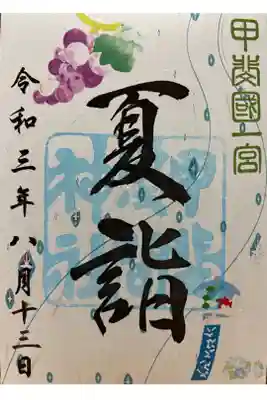 甲斐國一宮
夏詣
浅間神社
令和三年八月十三日